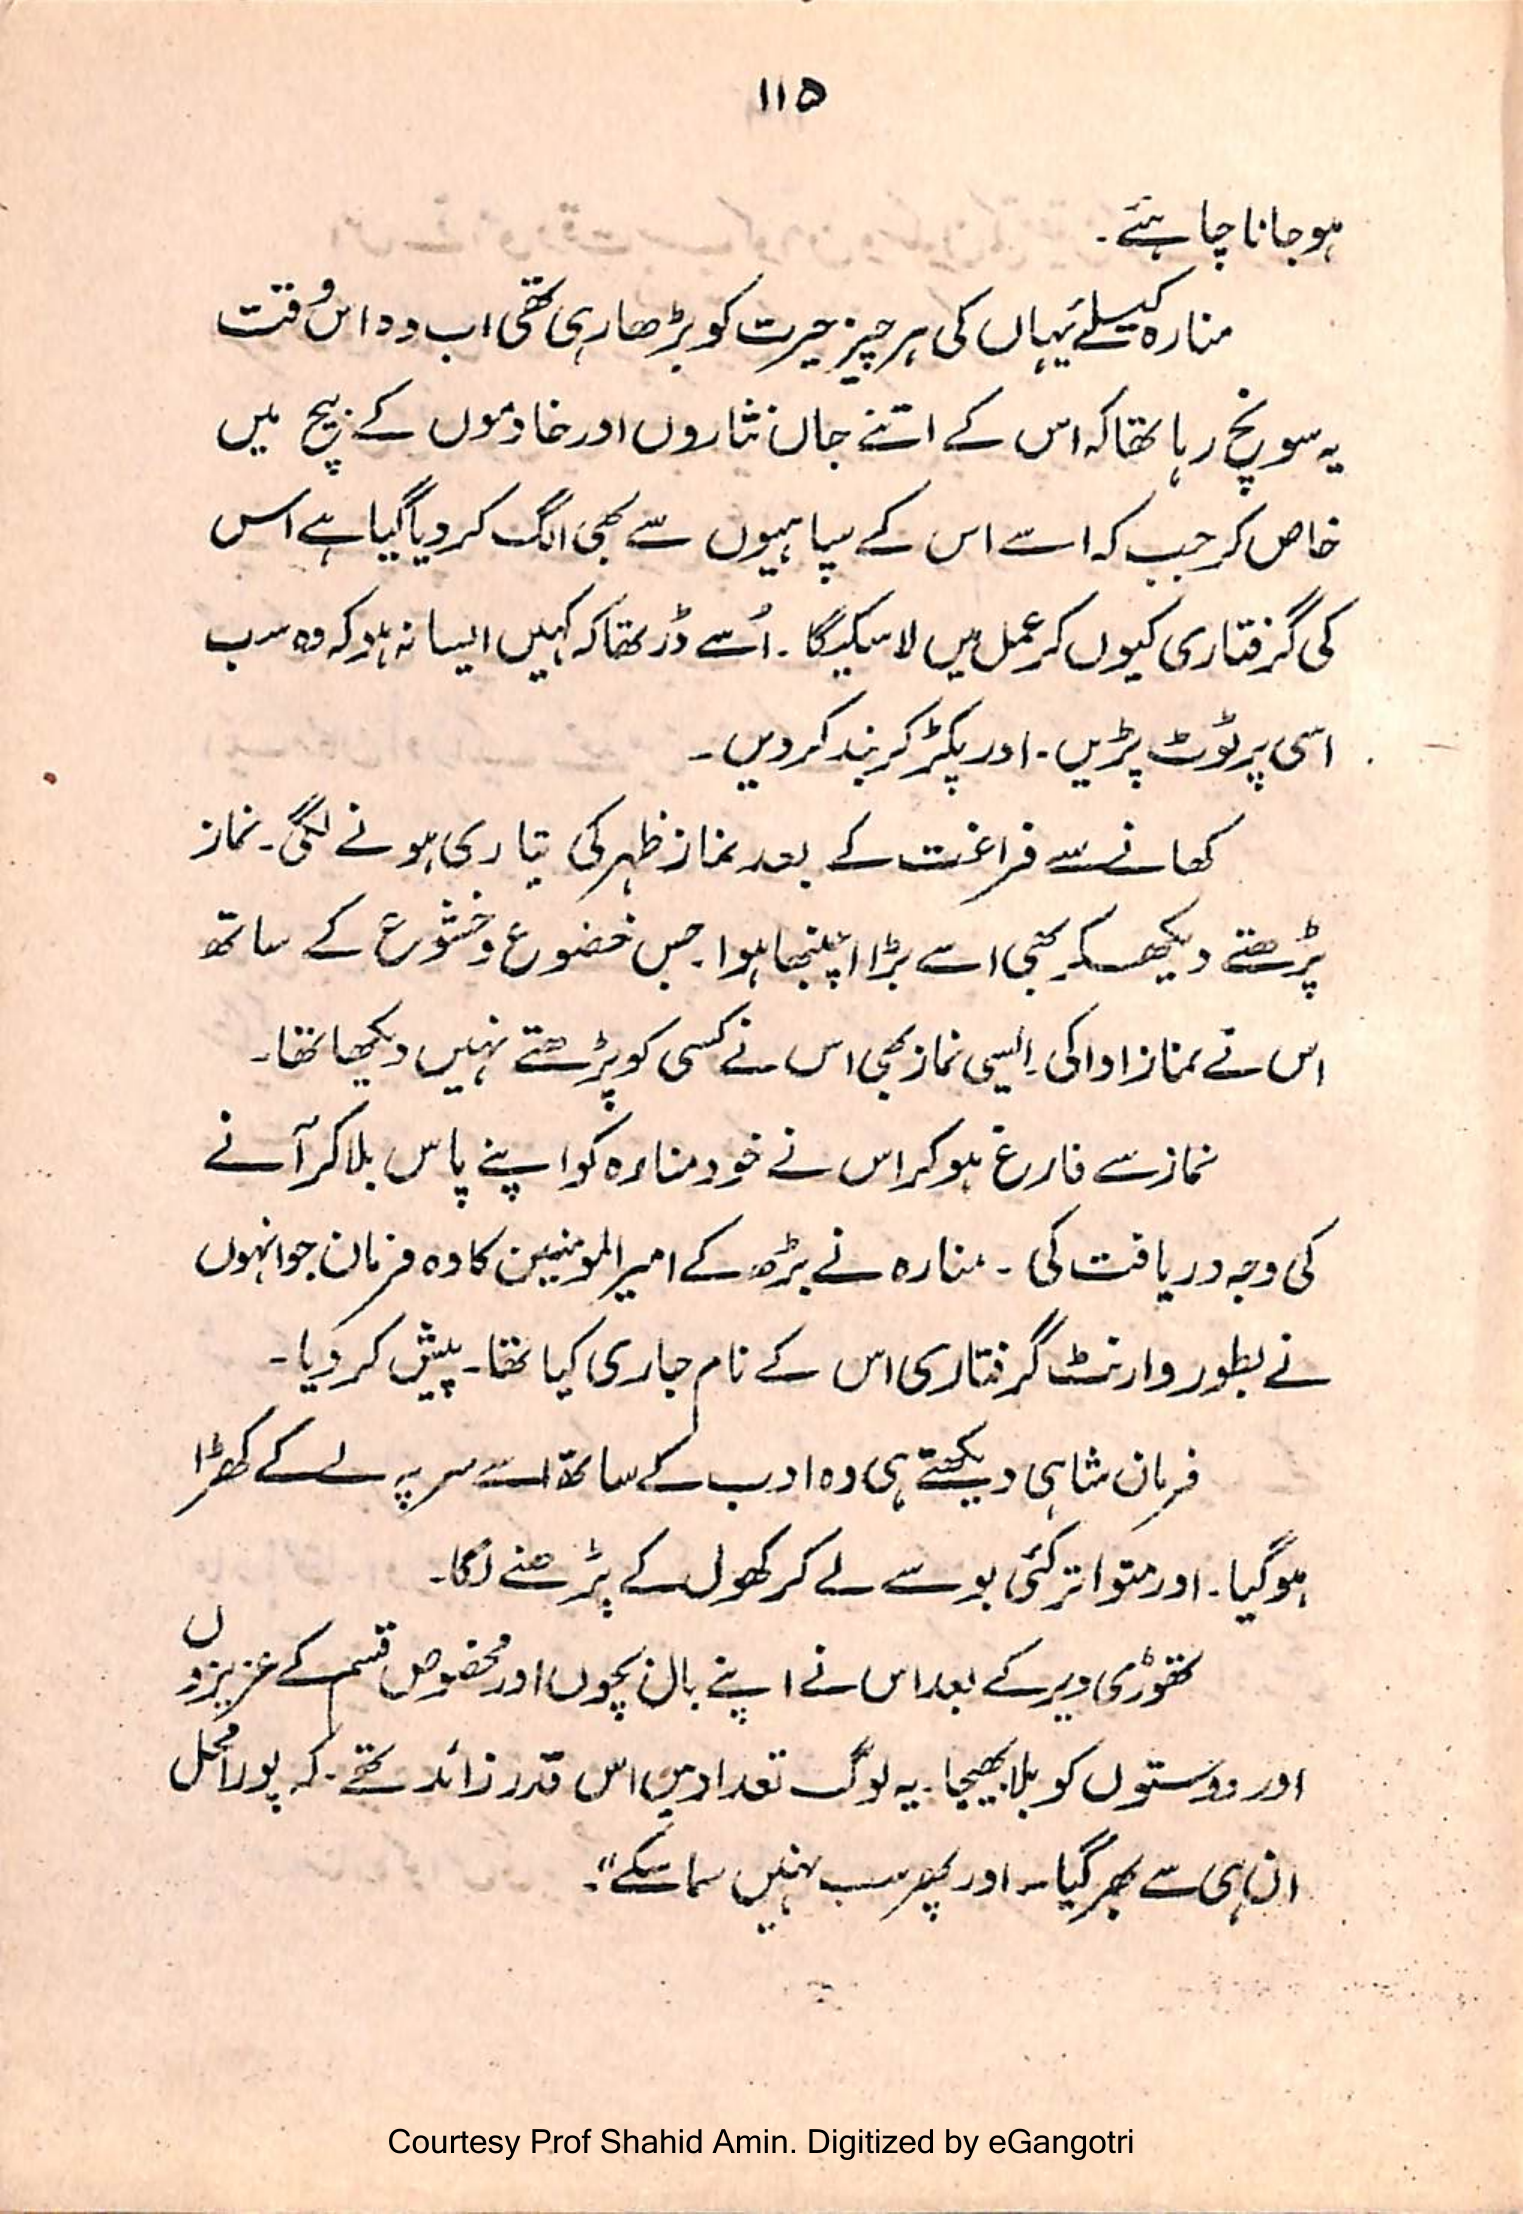 ۱۱۵
ہوجانا چاہئے۔
منارہ کیلئے یہاں کی ہر چیز حیرت کو بڑھا رہی تھی اب وہ اس وقت
یہ سونچ رہا تھا کہ اس کے اتنے جاں نثاروں اور خادموں کے بیچ میں
خاص کر جب کہ اسے اس کے سپاہیوں سے بھی الگ کر دیا گیا ہے اس
کی گرفتاری کیوں کر عمل میں لا سکیگا ۔ اُسے ڈر تھا کہ کہیں ایسا نہ ہو کہ وہ سب
اسی پر ٹوٹ پڑیں ۔ اور پکڑ کر بند کر دیں ۔
کھانے سے فراغت کے بعد نماز ظہر کی تیاری ہونے لگی ۔ نماز
پڑھتے دیکھکر بھی اسے بڑا اچنبھا ہوا ۔ جس خضوع و خشوع کے ساتھ
اس نے نماز ادا کی ۔ ایسی نماز بھی اس نے کسی کو پڑھتے نہیں دیکھا تھا ۔
نماز سے فارغ ہو کر اس نے خود منارہ کو اپنے پاس بلا کر آنے
کی وجہ دریافت کی ۔ منارہ نے بڑھ کے امیر المومنین کا وہ فرمان جو انہوں
نے بطور وارنٹ گرفتاری اس کے نام جاری کیا تھا ۔ پیش کر دیا ۔
فرمان شاہی دیکھتے ہی وہ ادب کے ساتھ اسے سر پہ لے کے کھڑا
ہو گیا ۔ اور متواتر کئی بوسے لے کر کھول کے پڑھنے لگا ۔
تھوڑی دیر کے بعد اس نے اپنے بال بچوں اور مخصوص قسم کے عزیزوں
اور دوستوں کو بلا بھیجا ۔ یہ لوگ تعداد میں اس قدر زائد تھے ۔ کہ پورا محل
ان ہی سے بھر گیا ۔ اور پھر سب نہیں سما سکے"۔
Courtesy Prof Shahid Amin. Digitized by eGangotri